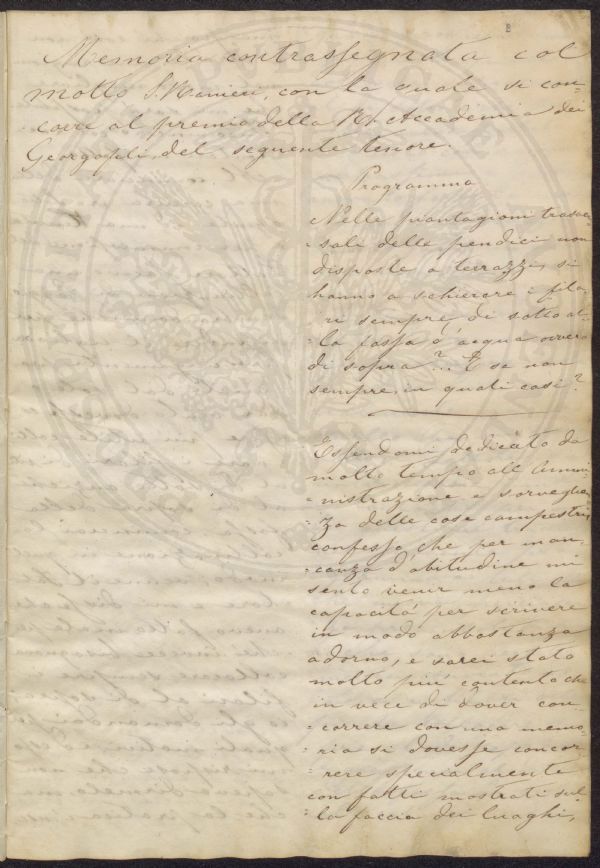 8
Memoria contrassegnata col
motto S. Ranieri, con la quale si con-
corre al premio della R. Accademia dei
Georgofili, del seguente tenore.
Programma
Nelle piantagioni trasver-
sali delle pendici non
disposte a terrazzi, si
hanno a schierare i fila-
ri sempre di sotto al-
la fossa d'acqua ovvero
di sopra?... E se non
sempre, in quali casi?
Essendomi dedicato da
molto tempo all'Ammi-
=nistrazione e sorveglian-
=za delle cose campestri,
confesso che per man-
=canza d'abitudine mi
sento venir meno la
capacità per scrivere
in modo abbastanza
adorno, e sarei stato
molto più contento che
in vece di dover con-
=correre con una memo-
=ria si dovesse concor-
=rere specialmente
con fatti mostrati sul-
=la faccia dei luoghi,